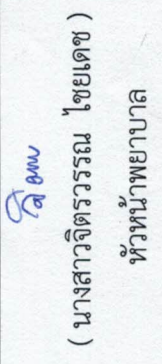 ( นางสาวจิตรวรรณ ไชยเดช )
หัวหน้าพยาบาล